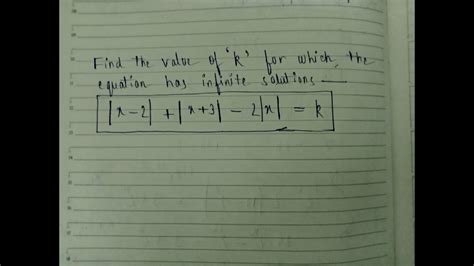 Find the value of 'k' for which, the
equation has infinite solutions —
|x-2| + |x+3| - 2|x| = k